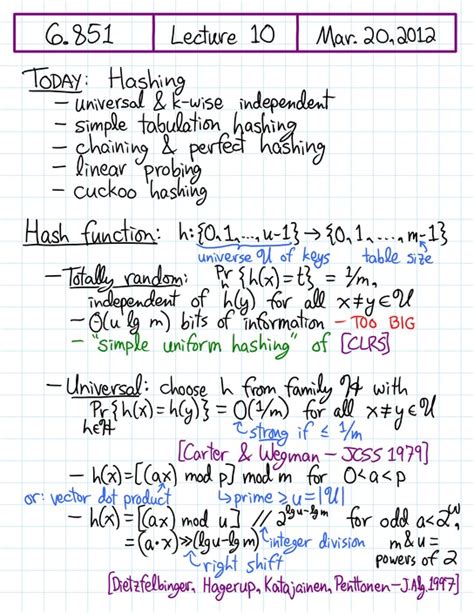 6.851 Lecture 10 Mar. 20, 2012
TODAY: Hashing
– universal & k-wise independent
– simple tabulation hashing
– chaining & perfect hashing
– linear probing
– cuckoo hashing
Hash function: h: {0,1,...,u-1} → {0,1,...,m-1}
universe 𝒰 of keys table size
– Totally random: Pr_h{h(x)=t} = 1/m,
independent of h(y) for all x≠y∈𝒰
– Θ(u lg m) bits of information – TOO BIG
– "simple uniform hashing" of [CLRS]
– Universal: choose h from family ℋ with
Pr_{h∈ℋ}{h(x)=h(y)} = O(1/m) for all x≠y∈𝒰
strong if ≤ 1/m
[Carter & Wegman – JCSS 1979]
– h(x)=[(ax) mod p] mod m for 0<a<p
or: vector dot product prime ≥ u=|𝒰|
– h(x)=[(ax) mod u] // 2^{lg u-lg m} for odd a<2^w,
=(a·x)≫(lg u-lg m) integer division m & u =
right shift powers of 2
[Dietzfelbinger, Hagerup, Katajainen, Penttonen–J.Alg.1997]